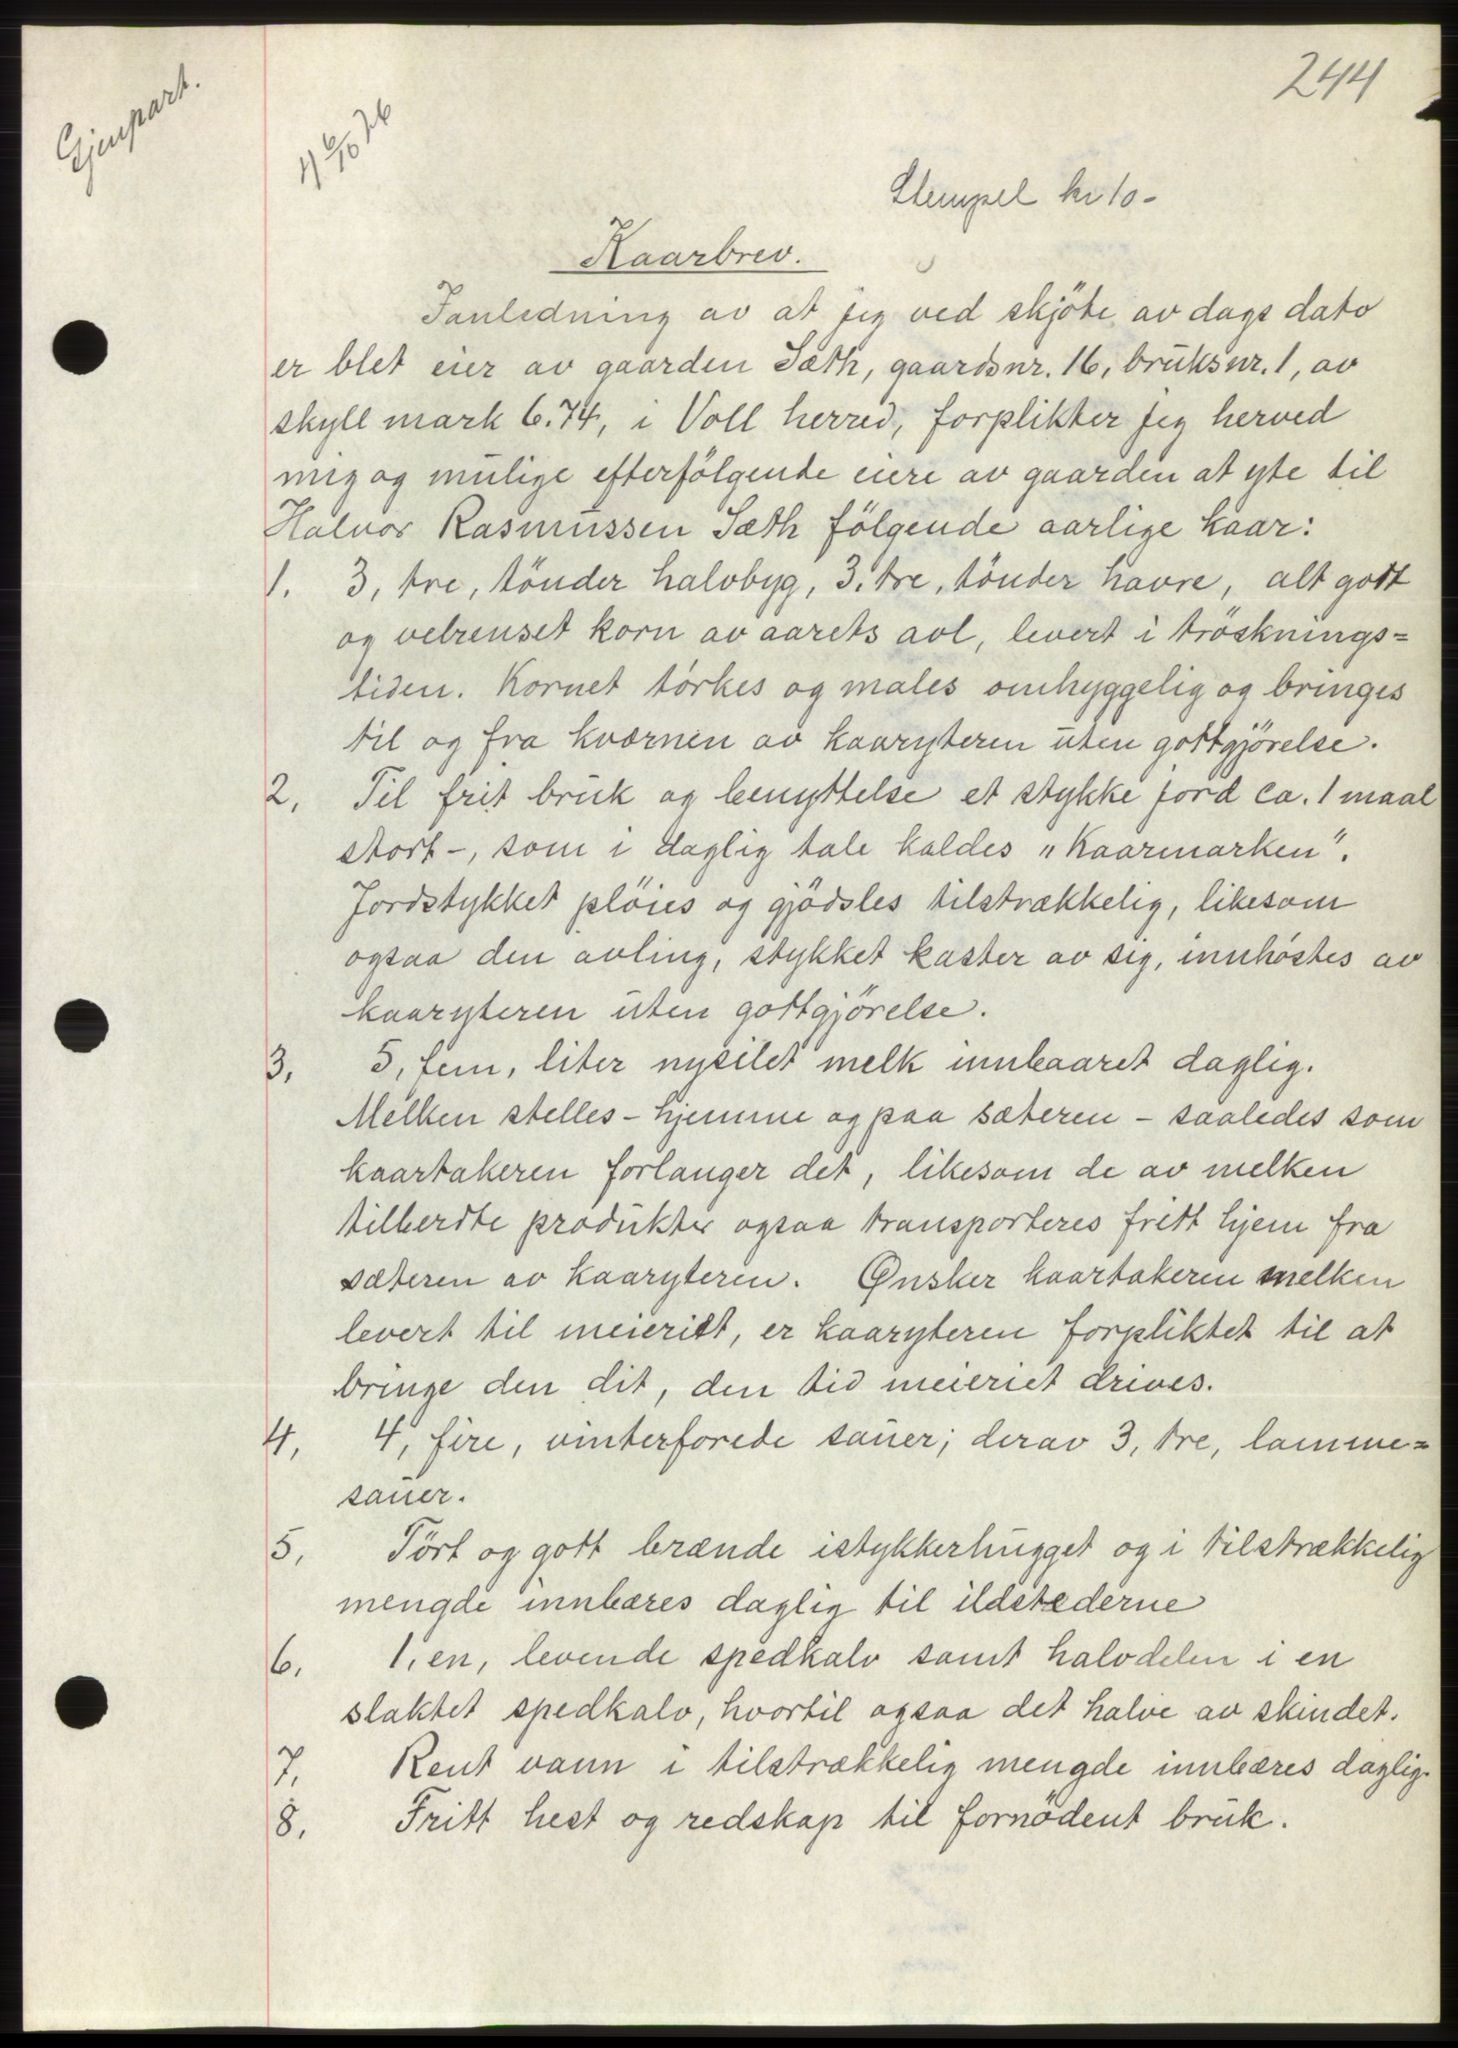 244
Gjenpart.
6/10 26
Stempel kr 10-
Kaarbrev.
Ianledning av at jeg ved skjöte av dags dato
er blet eier av gaarden Sæth, gaardsnr. 16, bruksnr. 1, av
skyll mark 6.74, i Voll herred, forplikter jeg herved
mig og mulige efterfölgende eiere av gaarden at yte til
Halvor Rasmussen Sæth fölgende aarlige kaar:
1. 3, tre, tönder halvbyg, 3. tre, tönder havre, alt gott
og velrenset korn av aarets avl, levert i trösknings=
tiden. Kornet törkes og males omhyggelig og bringes
til og fra kværnen av kaaryteren uten gottgjörelse.
2. Til frit bruk og benyttelse et stykke jord ca. 1 maal
stort -, som i daglig tale kaldes „Kaarmarken".
Jordstykket plöies og gjödsles tilstrækkelig, likesom
ogsaa den avling, stykket kaster av sig, innhöstes av
kaaryteren uten gottgjörelse.
3, 5, fem, liter nysilet melk innbaaret daglig.
Melken stelles - hjemme og paa sæteren - saaledes som
kaartakeren forlanger det, likesom de av melken
tilberdte produkter ogsaa transporteres fritt hjem fra
sæteren av kaaryteren. Ønsker kaartakeren melken
levert til meieriet, er kaaryteren forpliktet til at
bringe den dit, den tid meieriet drives.
4, 4, fire, vinterforede sauer; derav 3, tre, lamme=
sauer.
5, Tört og gott brænde istykkerhugget og i tilstrækkelig
mengde innbæres daglig til ildstederne
6. 1, en, levende spedkalv samt halvdelen i en
slaktet spedkalv, hvortil ogsaa det halve av skindet.
7. Rent vann i tilstrækkelig mengde innbæres daglig.
8. Fritt hest og redskap til fornödent bruk.